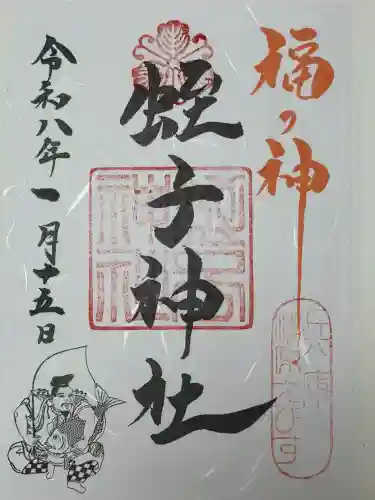 福ノ神
兵庫
蛭子神社
令和八年一月十五日